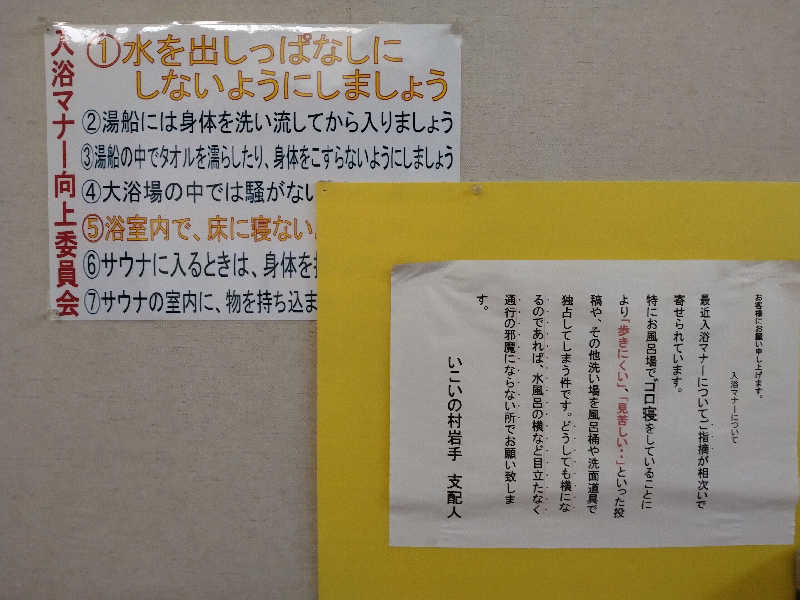 入浴マナー向上委員会
①水を出しっぱなしに
しないようにしましょう
②湯船には身体を洗い流してから入りましょう
③湯船の中でタオルを濡らしたり、身体をこすらないようにしましょう
④大浴場の中では騒がない
⑤浴室内で、床に寝ない
⑥サウナに入るときは、身体を
⑦サウナの室内に、物を持ち込ま
お客様にお願い申し上げます。
入浴マナーについて
最近入浴マナーについてご指摘が相次いで
寄せられています。
特にお風呂場で“ゴロ寝をしていることに
より「歩きにくい」、「見苦しい・・」といった投
稿や、その他洗い場を風呂桶や洗面道具で
独占してしまう件です。どうしても横にな
るのであれば、水風呂の横など目立たなく
通行の邪魔にならない所でお願い致しま
す。
いこいの村岩手 支配人